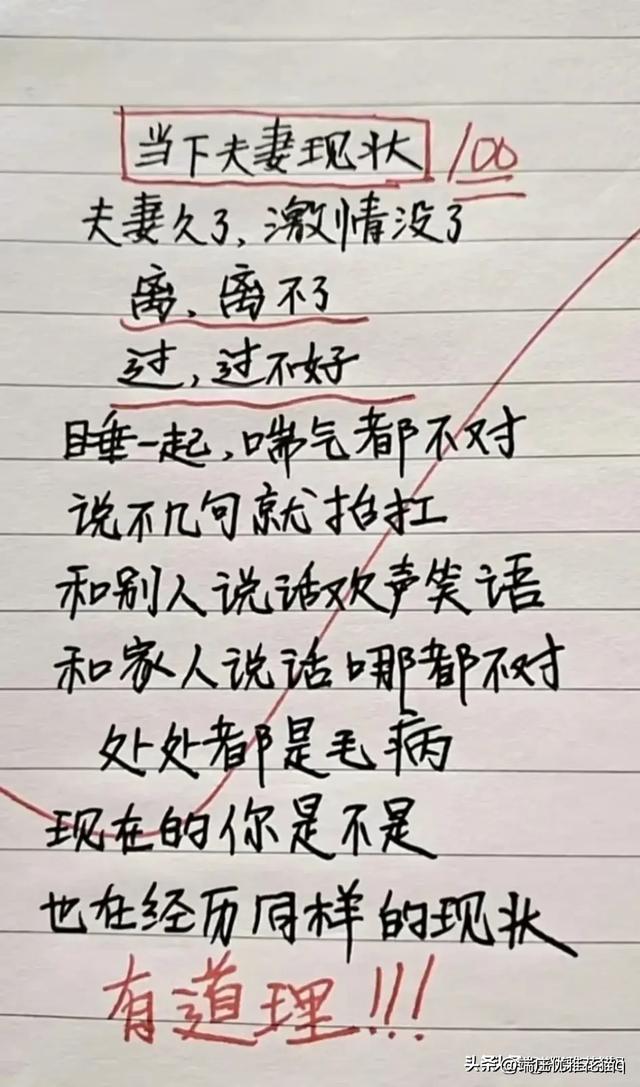 当下夫妻现状 100
夫妻久了,激情没了
离、离不了
过,过不好
睡一起,喘气都不对
说不几句就抬扛
和别人说话欢声笑语
和家人说话哪都不对
处处都是毛病
现在的你是不是
也在经历同样的现状
有道理!!!
头条 @端庄优雅花猫q